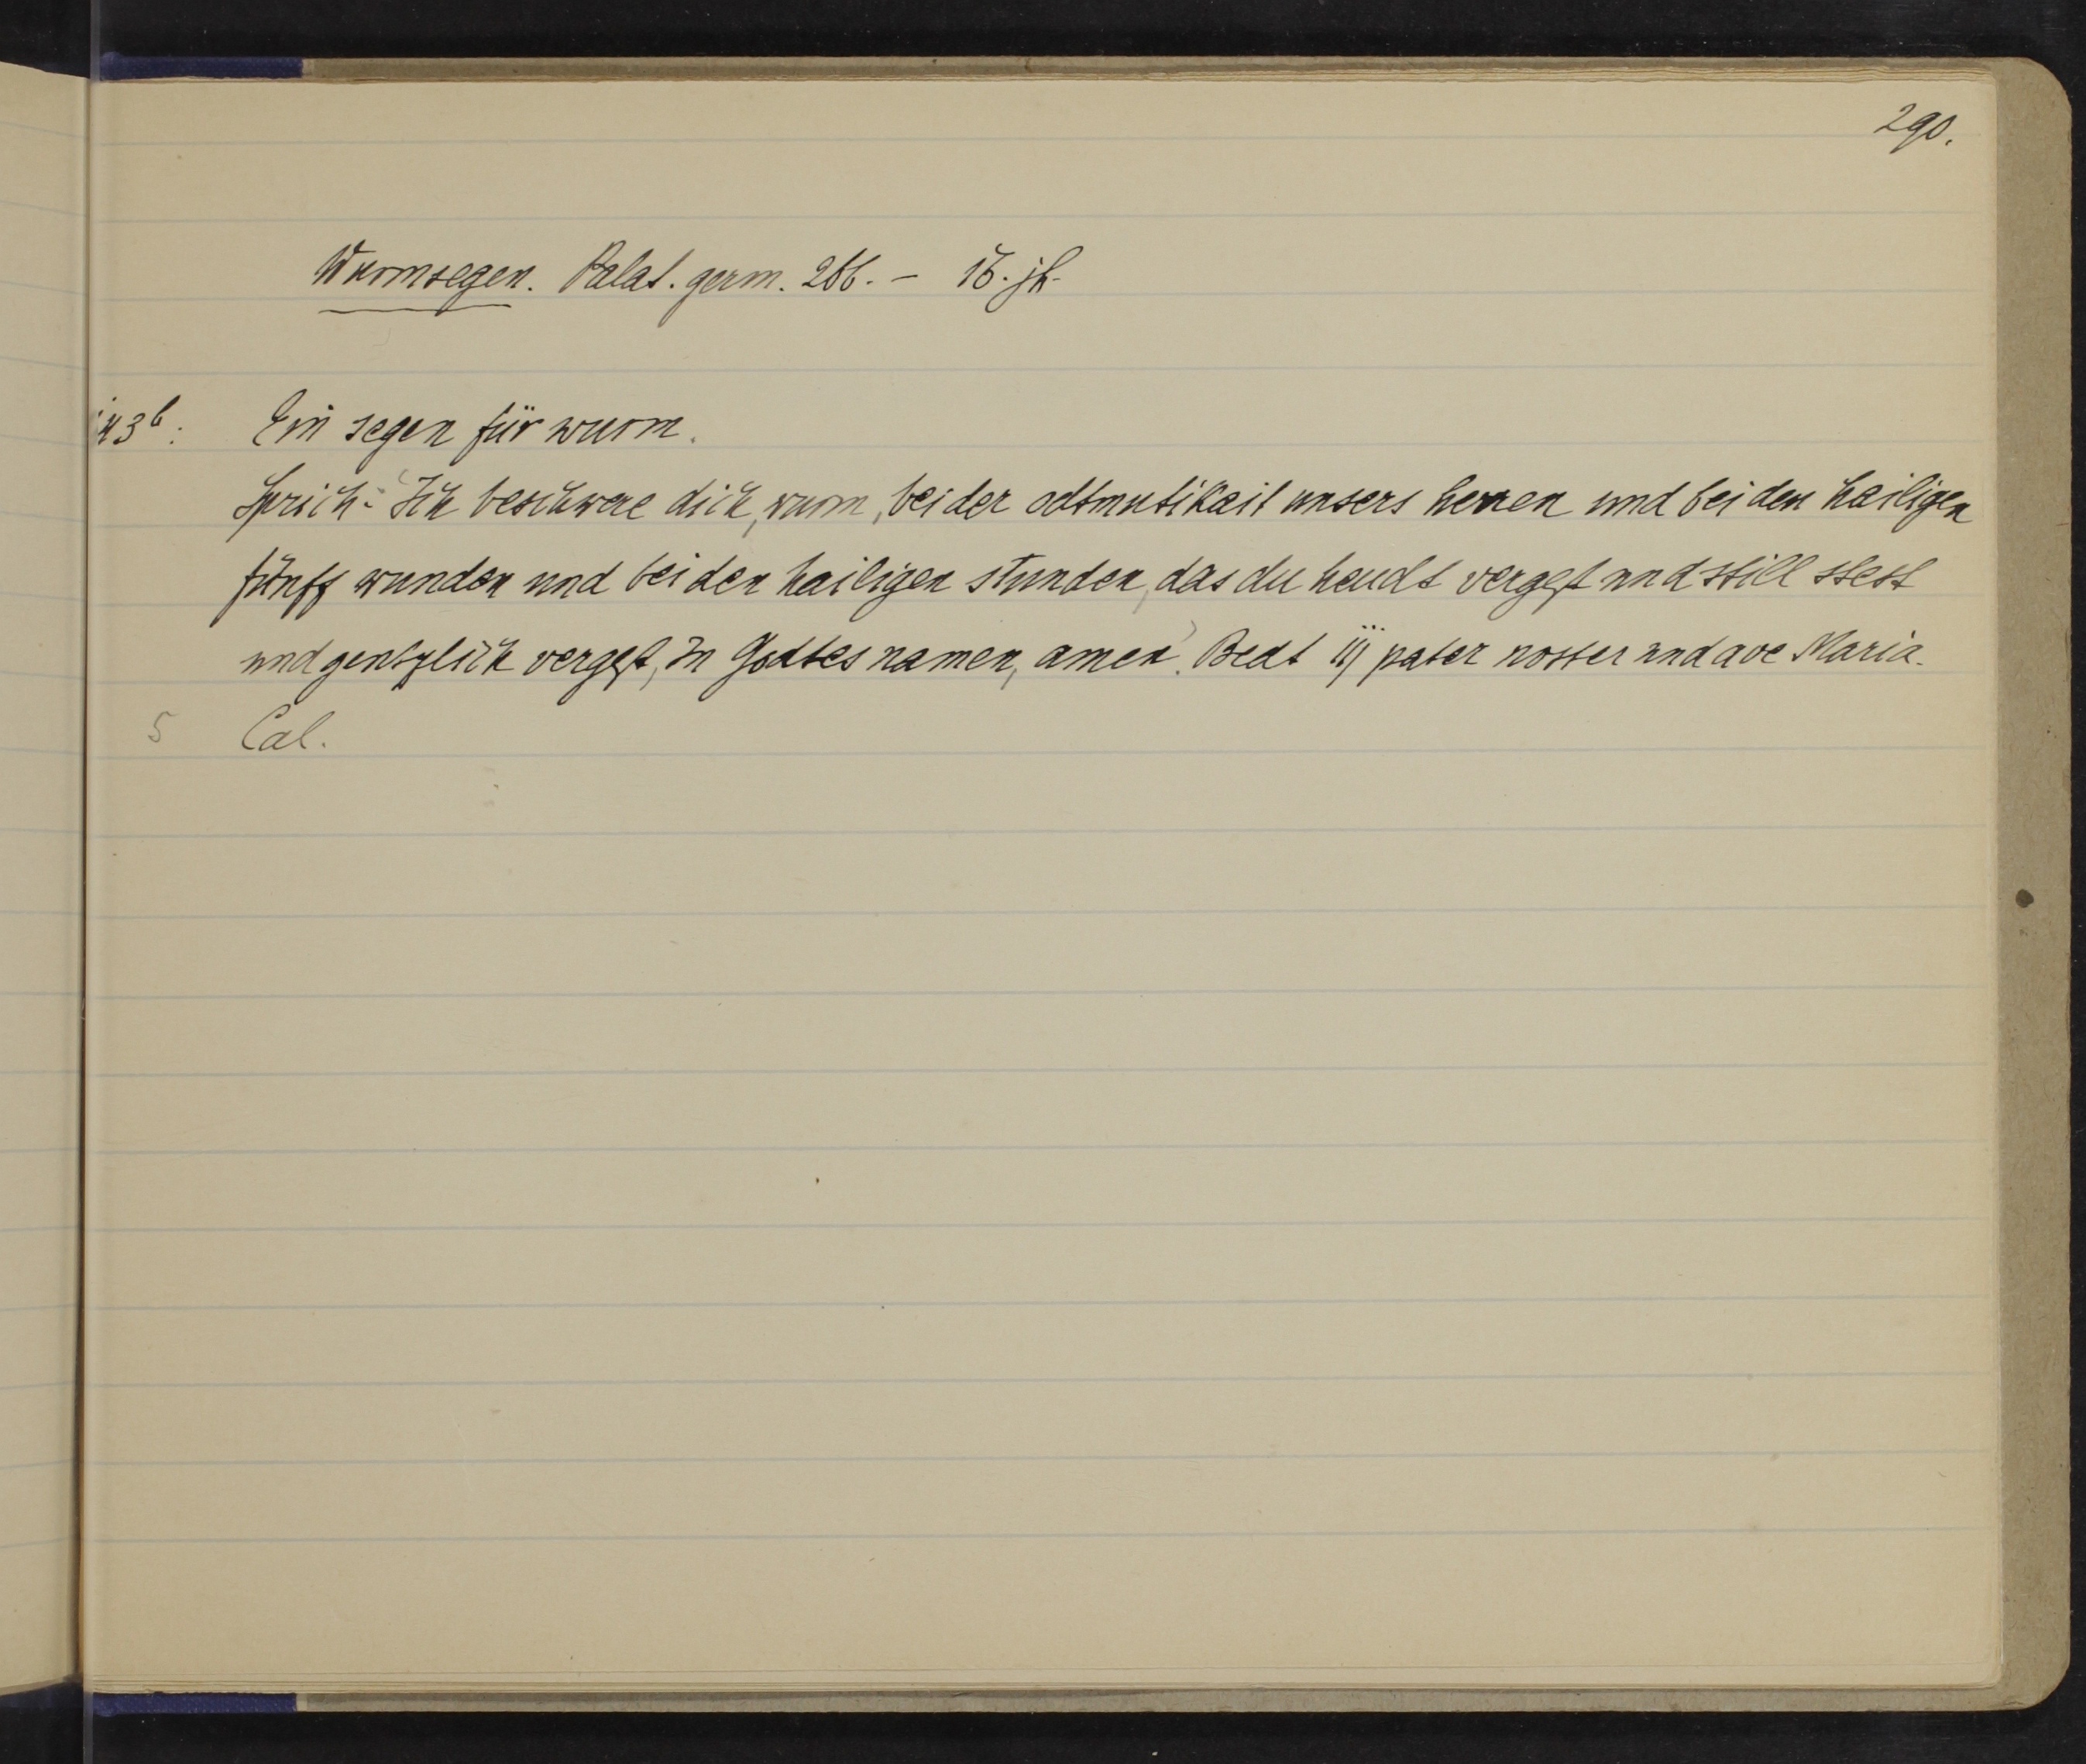 290.
Wurmsegen. Palat. germ. 266. - 16. jh.
43b: Ein segen für wurm.
Sprich: Ich beschwere dich, wurm, bei der odtmutikait unsers herren und bei den hailigen
fünff wunden und bei den hailigen stunden, das du heudt vergest und still stest
und gentzlich vergest, In Godtes namen, amen. Bedt iij pater noster und ave Maria.
5 Cal.